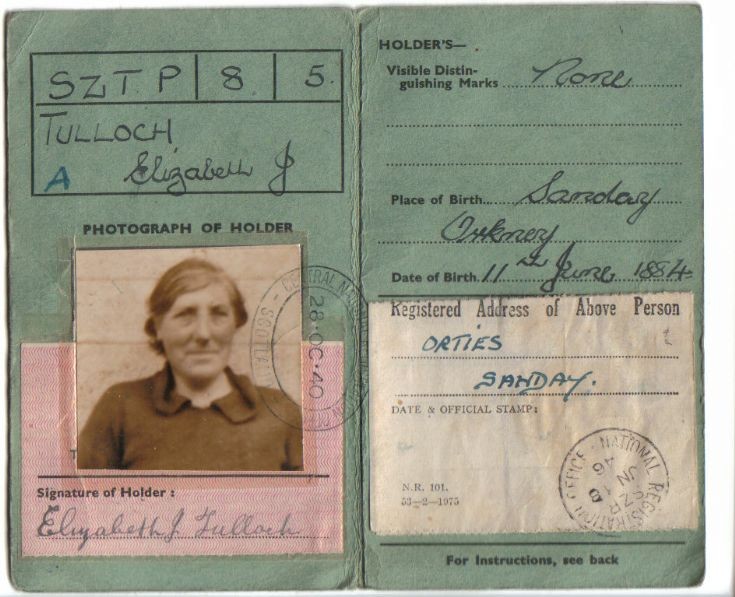 SZT.P 8. 5.
TULLOCH
A Elizabeth J
PHOTOGRAPH OF HOLDER
CENTRAL NATIONAL
SCOTLAND
28·OC·40
Signature of Holder :
Elizabeth J Tulloch
HOLDER'S—
Visible Distin-
guishing Marks None
Place of Birth Sanday
Orkney
Date of Birth 11th June 1884
Registered Address of Above Person
ORTIES
SANDAY.
DATE & OFFICIAL STAMP:
NATIONAL REGISTRATION OFFICE
SZR
JN
46
N.R. 101.
53—2—1975
For Instructions, see back